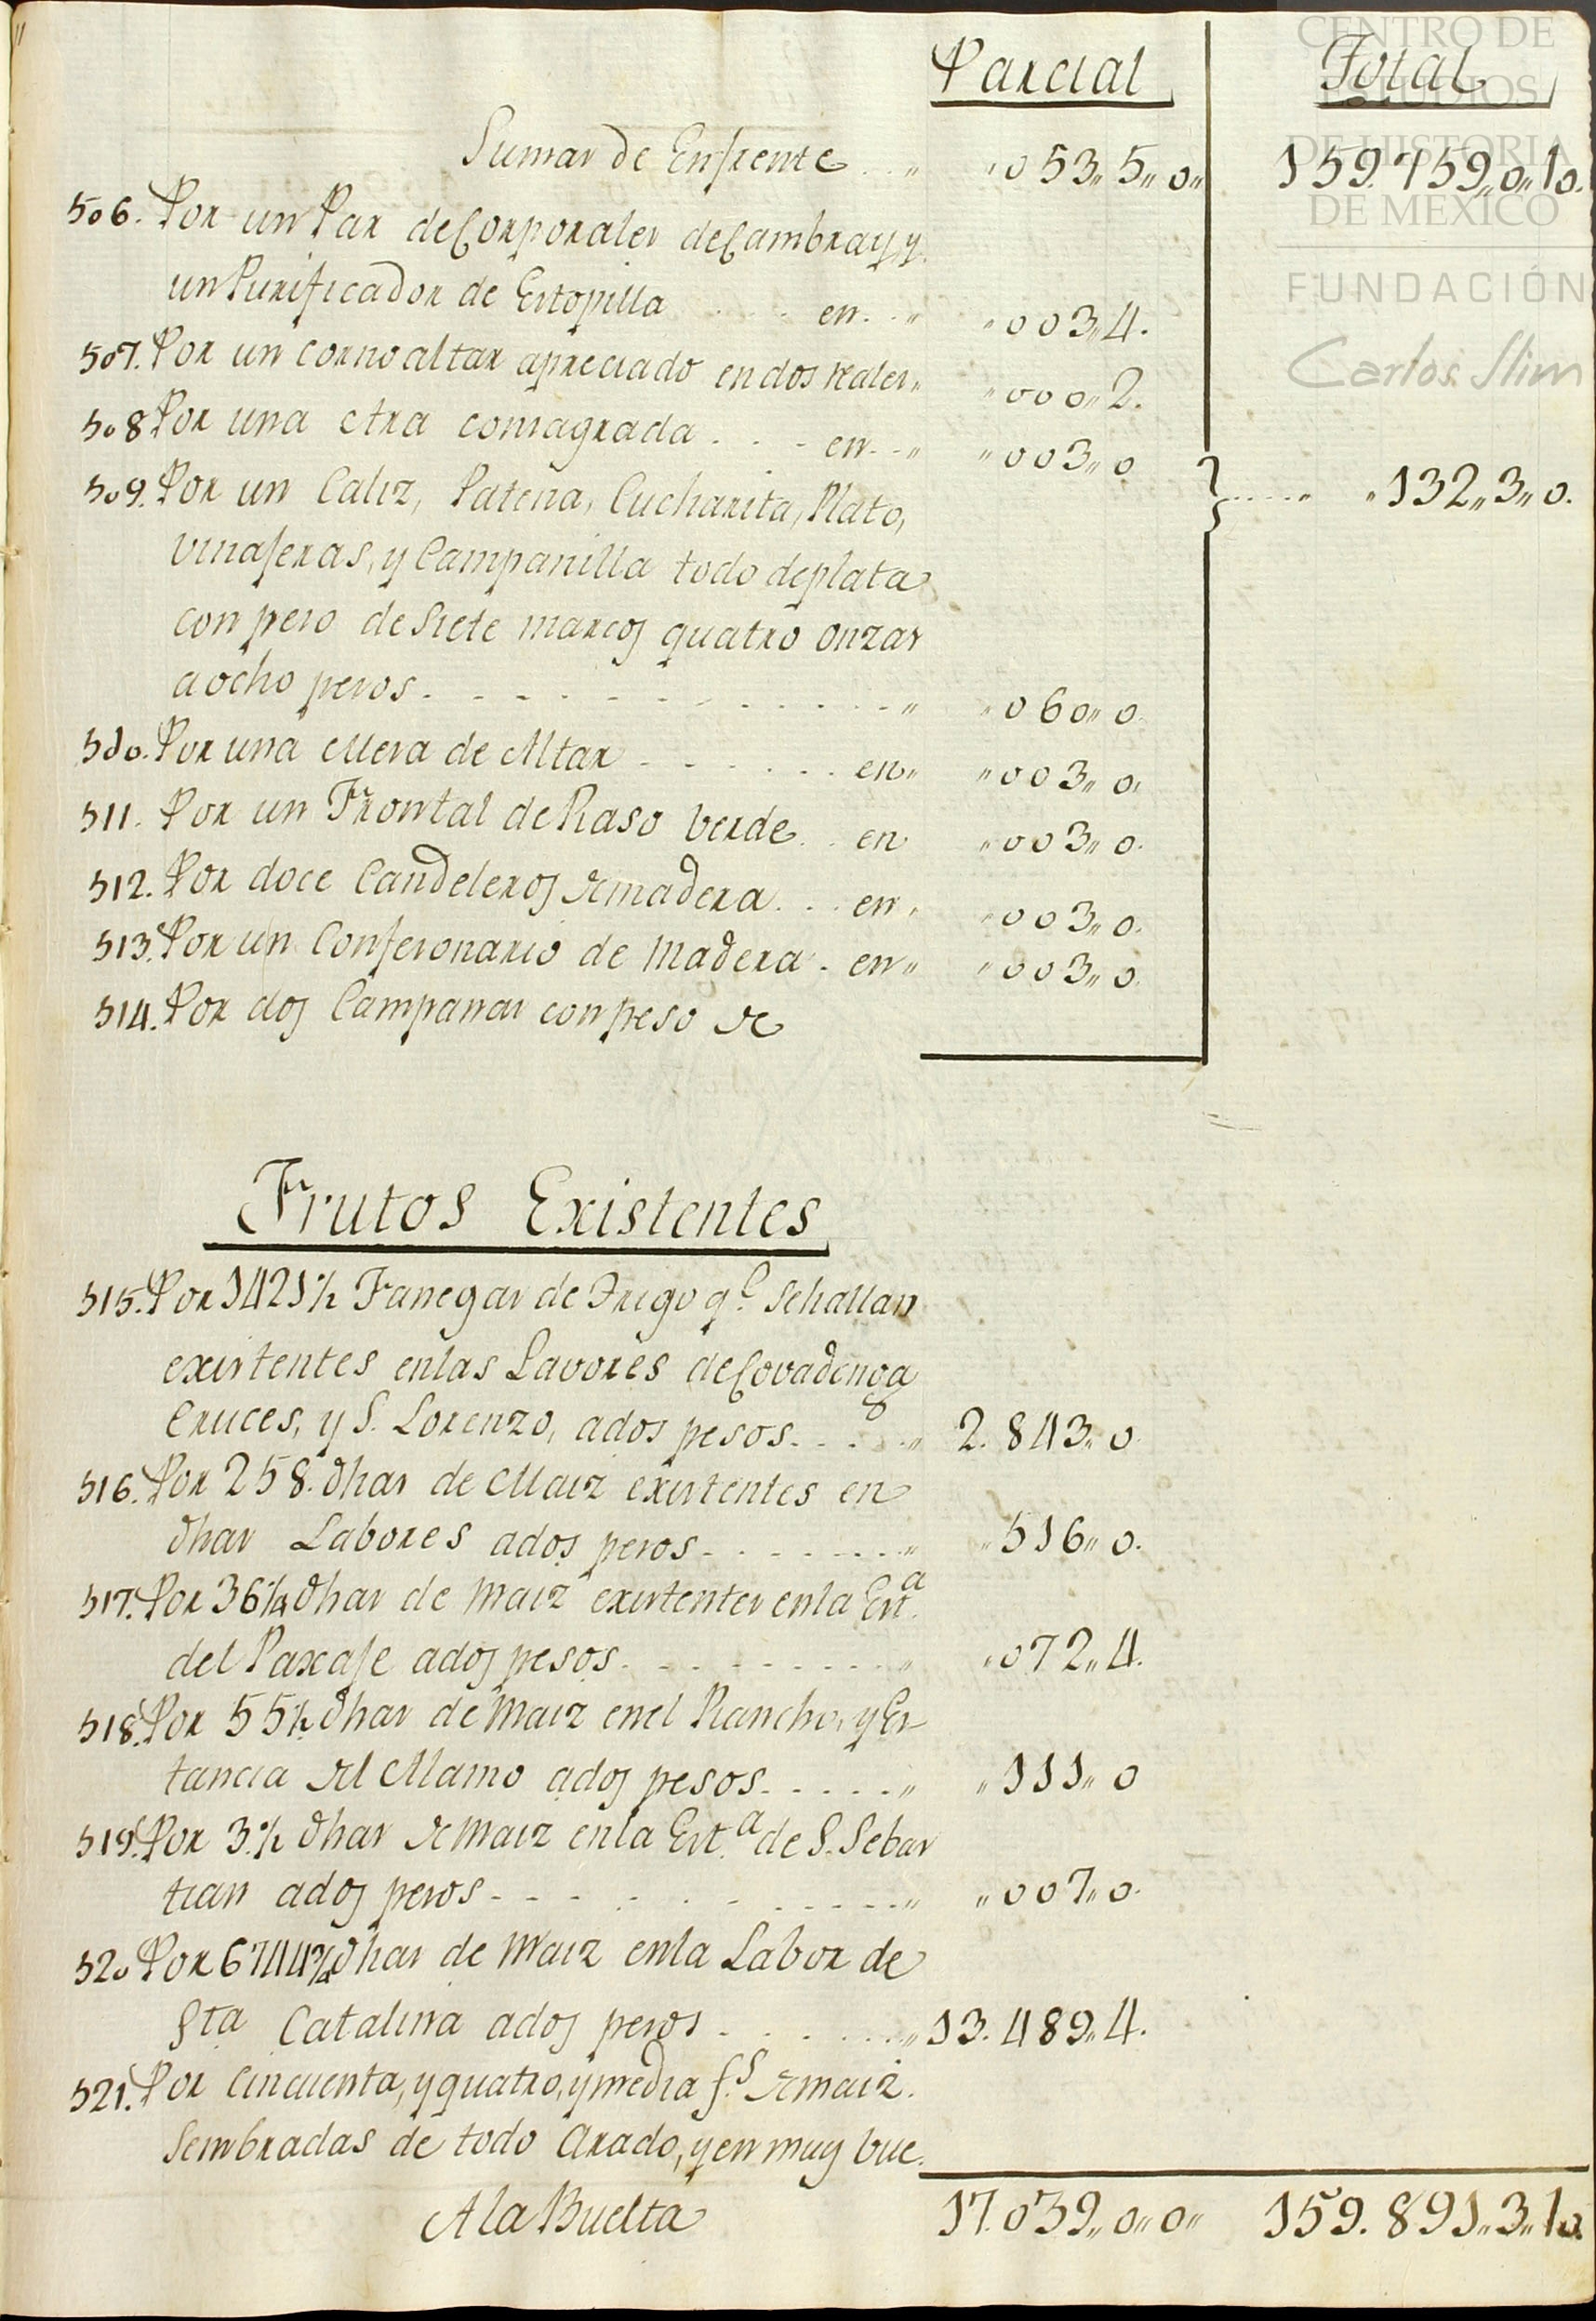 Parcial Total
Sumas de Enfrente . . „ „053„5„0„ 159.759„0„10.
506. Por un Par de Corporales de Cambray, y
un Purificador de Estopilla . . . en . . „ „003„4.
507. Por un cornoaltar apreciado en dos reales „ „000„2.
508 Por una Ara consagrada . . . en . . „ „003„0
509. Por un Caliz, Patena, Cucharita, Plato,
vinajeras, y Campanilla todo de plata
con peso de Siete marcos quatro onzas
a ocho pesos . . . . . . „ „060„0. } . . . . „132„3„0.
510. Por una Mesa de Altar . . . . . . en „ „003„0.
511. Por un Frontal de Raso Verde . . en „003„0.
512. Por doce Candeleros de madera . . . en „ „003„0.
513. Por un Confesonario de Madera . en „ „003„0.
514. Por dos Campanas con peso de
Frutos Existentes
515. Por 1421½ Fanegas de Trigo q.e se hallan
existentes en las Lavores de Covadonga
Cruces, y S. Lorenzo, a dos pesos . . . . „ 2.843„0.
516. Por 258. dhas de Maiz existentes en
dhas Labores a dos pesos . . . . . . „ „516„0.
517. Por 36¼ dhas de Maiz existentes en la Est.a
del Paxaje a dos pesos . . . . . . „ „072„4.
518. Por 55½ dhas de Maiz en el Rancho, y Es-
tancia del Alamo a dos pesos . . . . . „ „111„0
519. Por 3.½ dhas de Maiz en la Est.a de S. Sebas
tian a dos pesos . . . . . . „ „007„0.
520 Por 6744¾ dhas de Maiz en la Labor de
Sta Catalina a dos pesos . . . . . „ 13.489„4.
521. Por cincuenta, y quatro, y media f.s de maiz
Sembradas de todo Arado, y en muy bue.
A la Buelta 17.039„0„0„ 159.891„3„10.
CENTRO DE
ESTUDIOS
DE HISTORIA
DE MEXICO
FUNDACIÓN
Carlos Slim